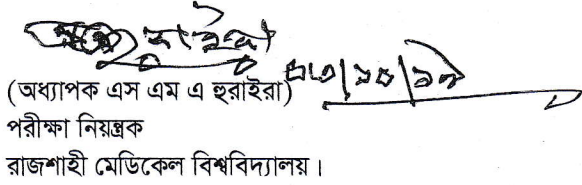 (অধ্যাপক এস এম এ হুরাইরা)
পরীক্ষা নিয়ন্ত্রক
রাজশাহী মেডিকেল বিশ্ববিদ্যালয়।